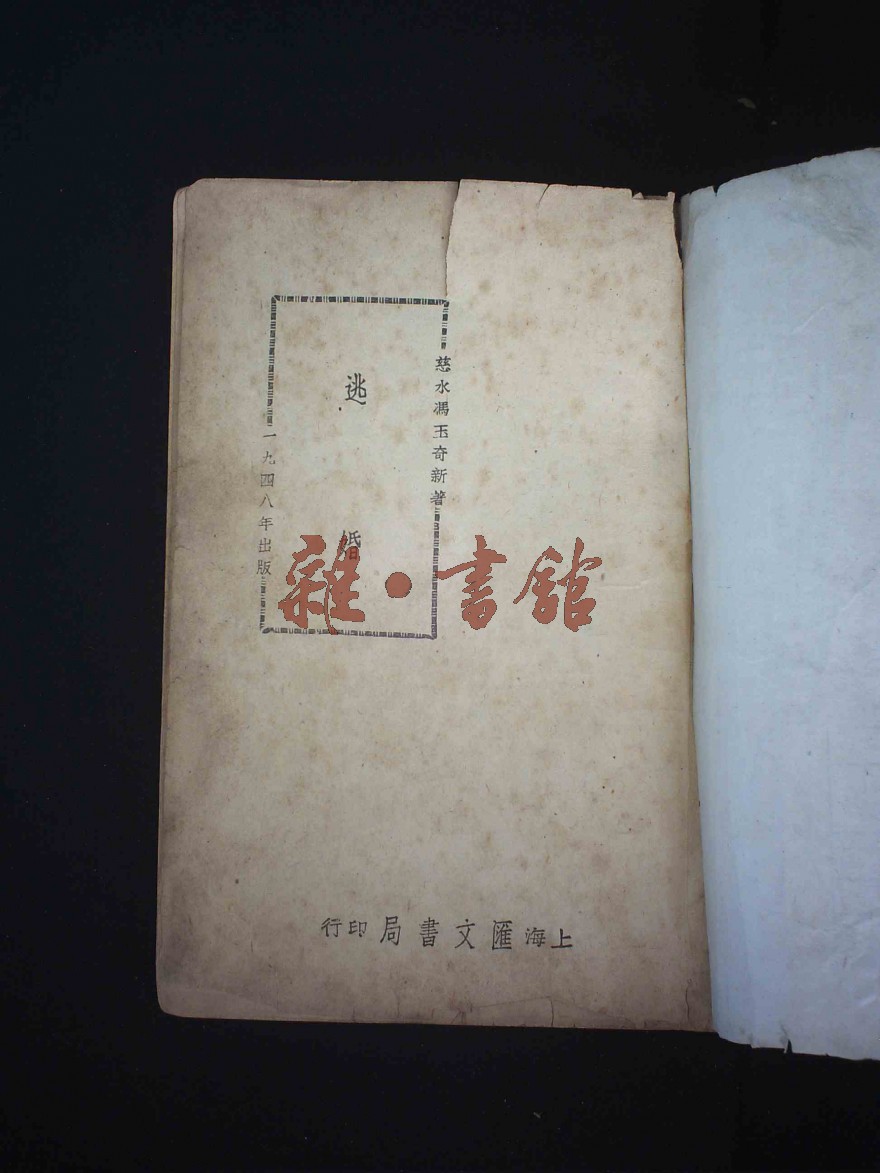 慈水馮玉奇新著
逃婚
一九四八年出版
上海匯文書局印行
雜·書館